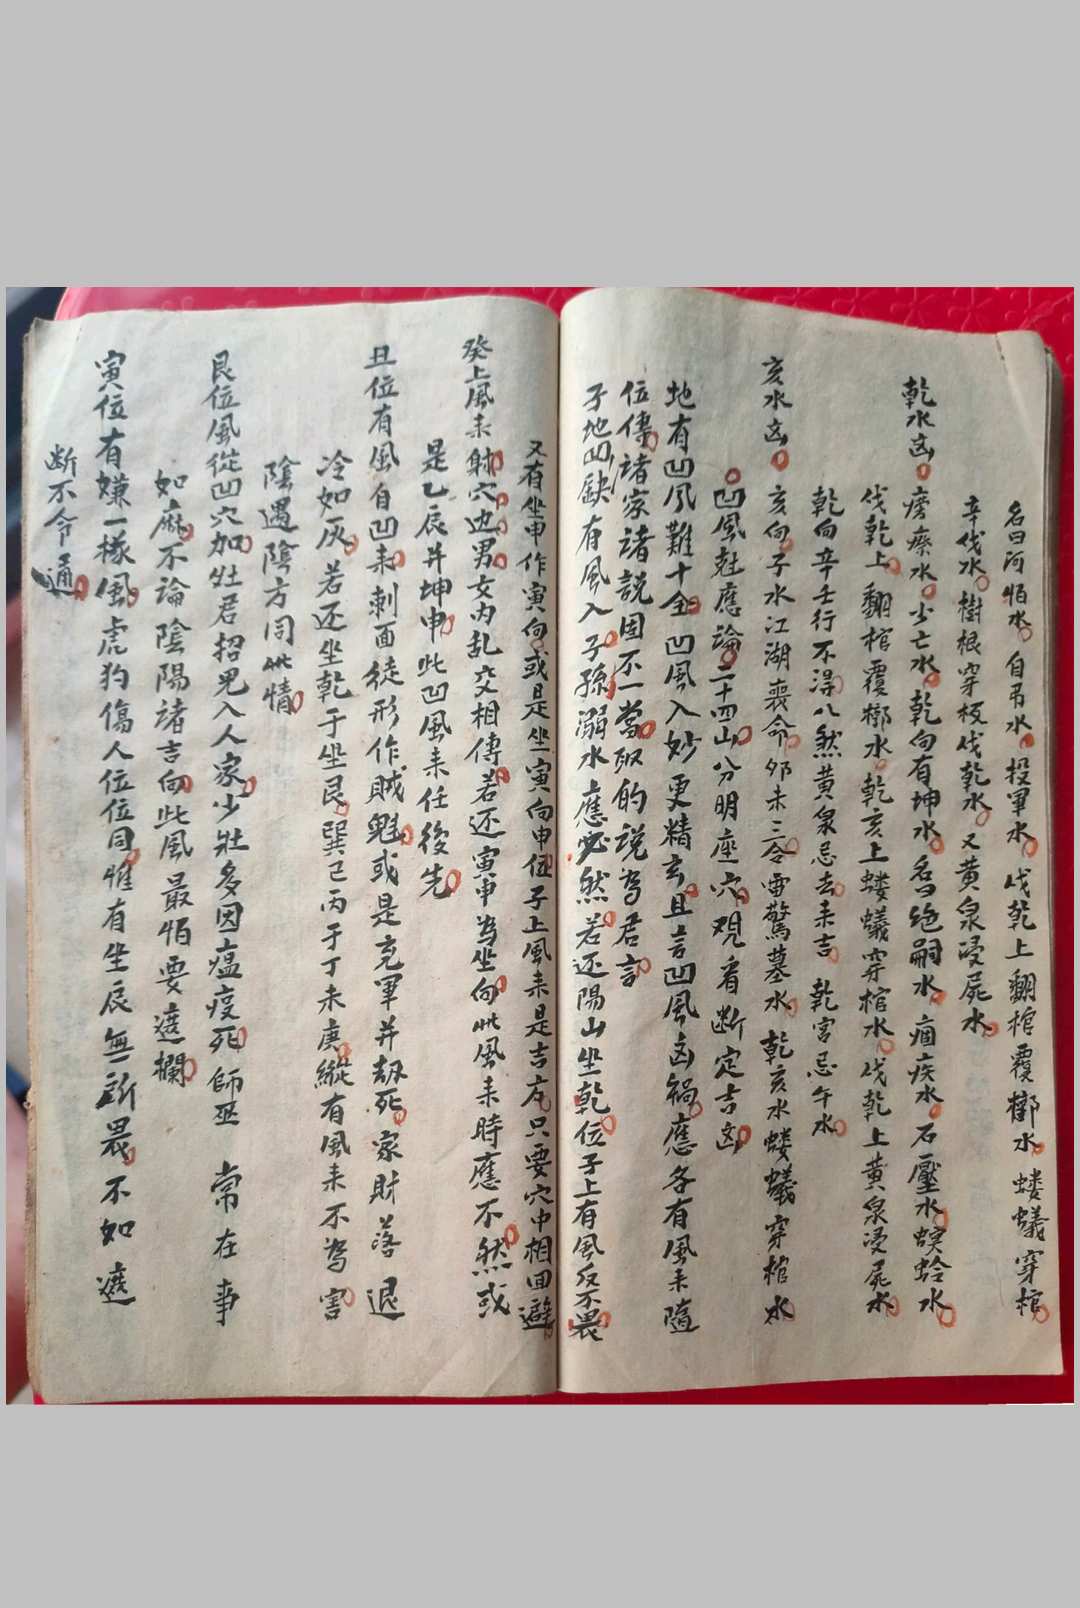 名曰河怕水自吊水投軍水戊乾上翻棺覆槨水蝼蟻穿棺
辛戊水樹根穿板戊乾水又黃泉浸屍水
乾水凶瘠瘵水少亡水乾向有坤水名絶嗣水痼疾水石壓水螟蛉水
戊乾上翻棺覆槨水乾亥上蝼蟻穿棺水戊乾上黃泉浸屍水
乾向辛壬行不淂八煞黃泉忌去来吉乾宫忌午水
亥水凶亥向子水江湖喪命卯未三合雷驚墓水乾亥水蝼蟻穿棺水
凹風尅應論二十四山分明座穴观看断定吉凶
地有凹风難十全凹風入妙更精玄且言凹風凶禍應各有風来隨
位傳諸家諸說固不一當取的说為君言
子地凹缺有風入子孫溺水應必然若还陽山坐乾位子上有風反不畏
又有坐申作寅向或是坐寅向申位子上風来是吉方只要穴中相回避
癸上風来射穴边男女内乱交相傳若还寅申為坐向此風来時應不然或
是乙辰并坤申此凹風来任後先
丑位有風自凹来刺面徒形作賊魁或是充軍并刼死家財落退
冷如灰若还坐乾于坐艮巽己丙于丁未庚縱有風来不為害
陰遇陰方同此情
艮位風從凹穴加灶君招鬼入人家少壯多因瘟疫死師巫常在事
如麻不論陰陽諸吉向此風最怕要遮攔
寅位有嫌一樣風虎狗傷人位位同惟有坐辰無所畏不如遮
断不令通